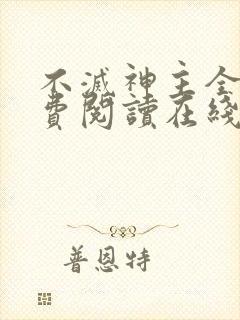 不滅神主全
費閱讀在綫
普恩特